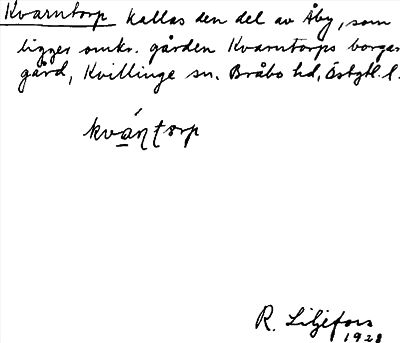 Kvarntorp kallas den del av Åby, som
ligger omkr. gården Kvarntorps borgar
gård, Kvillinge sn. Bråbo hd, Östgtl. l.
kvaṉ́torp
R. Liljefors
1928